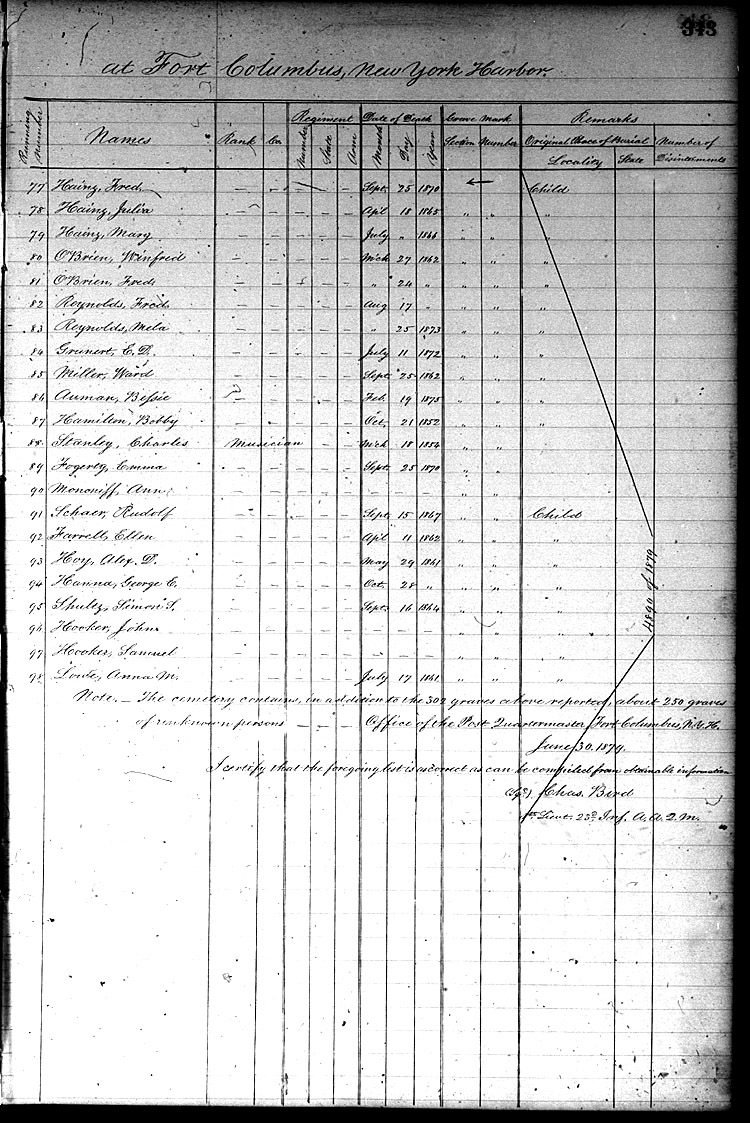 343
at Fort Columbus, New York Harbor.
Running Number Names Rank Co. Regiment Date of Death Grave Mark Remarks
Number State Arm Month Day Year Section Number Original Place of Burial Number of Disinterments
Locality State
77 Hainz, Fred. — — — — — Sept. 25 1870 Child
78 Hainz, Julia — — — — — Apil 18 1865 " " "
79 Hainz, Mary — — — — — July " 1866 " " "
80 O'Brien, Winfred — — — — — Mich 27 1862 " " "
81 O'Brien, Fred. — — — — — " 24 " " " "
82 Reynolds, Fred. — — — — — Aug 17 " " " "
83 Reynolds, Mela — — — — — " 25 1873 " " "
84 Grunert, E. D. — — — — — July 11 1872 " " "
85 Miller, Ward — — — — — Sept. 25 1862 " " "
86 Auman, Bessie — — — — — Feb. 19 1875 " " "
87 Hamilton, Bobby — — — — — Oct. 21 1852 " " "
88 Stanley, Charles Musician — — — Mich 18 1854 " "
89 Fogerty, Emma — — — — — Sept. 25 1870 " "
90 Moncriff, Ann — — — — — — — — " "
91 Schaer, Rudolf — — — — — Sept. 15 1867 " " Child
92 Farrell, Ellen — — — — — Apil 11 1862 " " "
93 Hoy, Alex. D. — — — — — May 29 1861 " " "
94 Hanna, George C. — — — — — Oct. 28 " " " "
95 Shultz, Simon S. — — — — — Sept. 16 1864 " " "
96 Hooker, John — — — — — — — — " " "
97 Hooker, Samuel — — — — — — — — " " "
98 Lowe, Anna M. — — — — — July 17 1861 " " "
4890 of 1879
Note. — The cemetery contains, in addition to the 302 graves above reported, about 250 graves
of unknown persons — — — Office of the Post Quartermaster, Fort Columbus, N.Y.H.
June 30, 1879.
I certify that the foregoing list is as correct as can be compiled from obtainable information
(Sgd) Chas. Bird
1st Lieut. 23d Inf. A. A. Q. M.